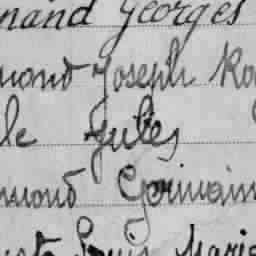 nand Georges
mond Joseph Ro
le Jules
mond Germain
Louis Marie